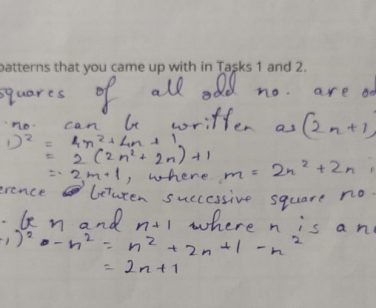 patterns that you came up with in Tasks 1 and 2.
squares of all odd no. are od
no. can be written as (2n+1)
)² = 4n² + 4n + 1
= 2 (2n² + 2n) + 1
= 2m+1, where m = 2n² + 2n i
erence between successive square no.
be n and n+1 where n is a n
+1)² - n² = n² + 2n + 1 - n²
= 2n+1